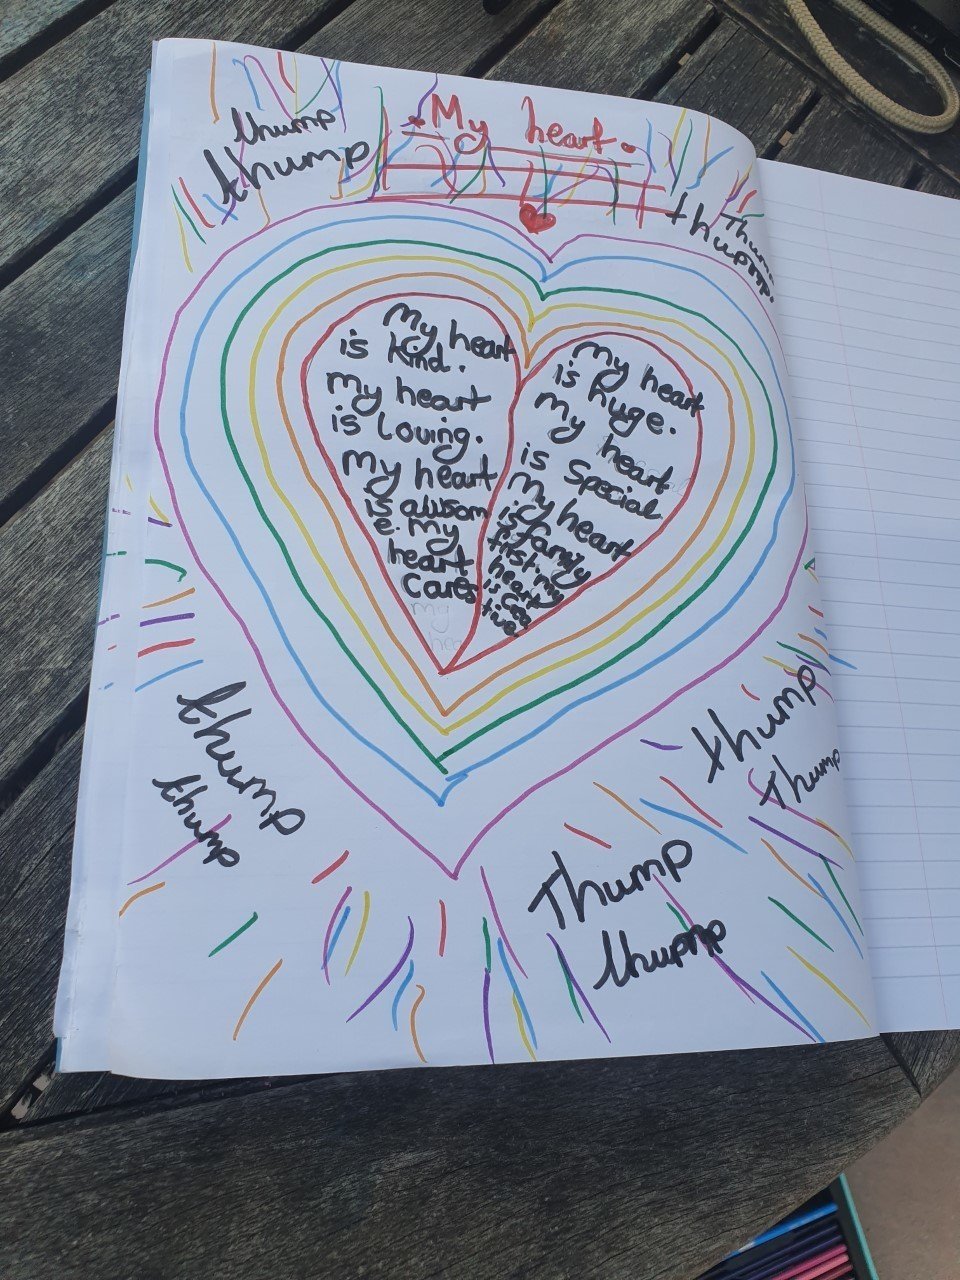 My heart.
thump
thump
thump
Thump.
My heart
is kind.
My heart
is loving.
My heart
is awsom
e. My
heart
cares
my
hea
My heart
is huge.
My heart
is special
My heart
is family
first. my
heart
is crea
tive
thump
thump
thump
Thump
Thump
thump